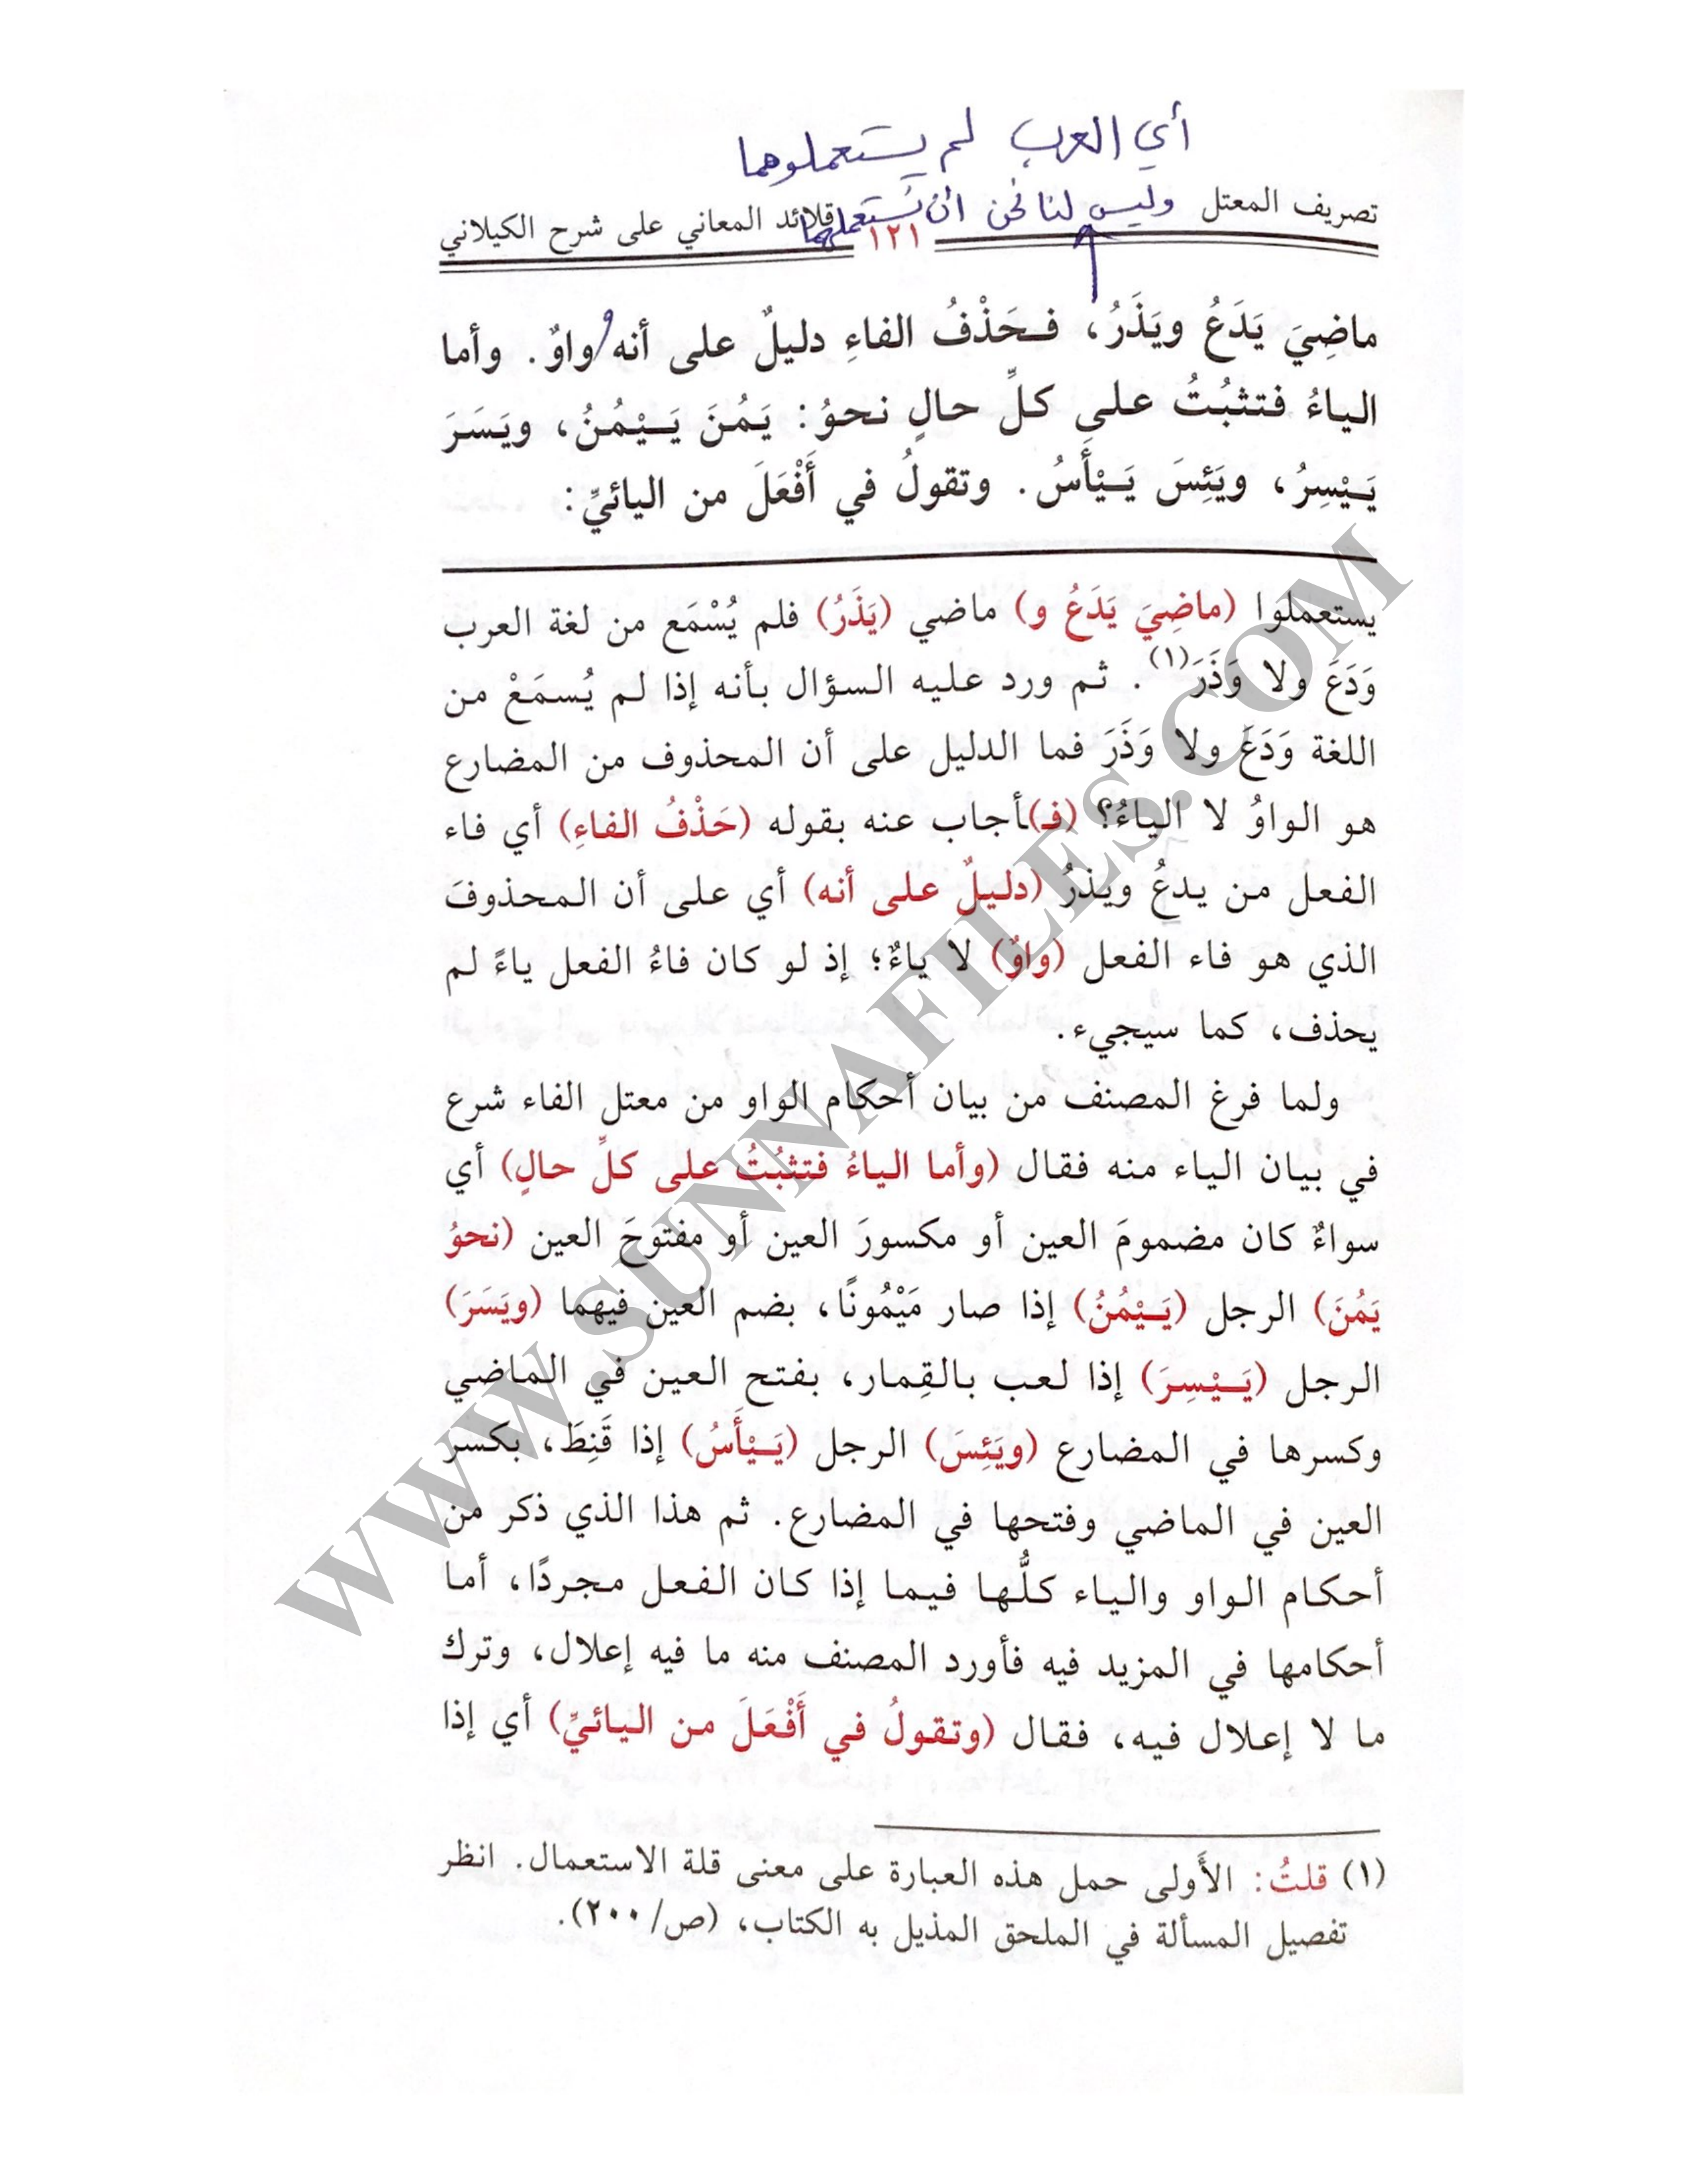 أي العرب لم يستعملوهما
وليس لنا نحن أن نستعملهما
تصريف المعتل ١٢١ قلائد المعاني على شرح الكيلاني
ماضِيَ يَدَعُ ويَذَرُ، فـحَذْفُ الفاءِ دليلٌ على أنه واوٌ. وأما
الياءُ فتثبُتُ على كلِّ حالٍ نحوُ: يَمُنَ يَـيْمُنُ، ويَسَرَ
يَـيْسِرُ، ويَئِسَ يَـيْأَسُ. وتقولُ في أَفْعَلَ من اليائيِّ:
يستعملوا (ماضِيَ يَدَعُ و) ماضي (يَذَرُ) فلم يُسْمَع من لغة العرب
وَدَعَ ولا وَذَرَ(١). ثم ورد عليه السؤال بأنه إذا لم يُسمَعْ من
اللغة وَدَعَ ولا وَذَرَ فما الدليل على أن المحذوف من المضارع
هو الواوُ لا الياءُ؟ (فـ)أجاب عنه بقوله (حَذْفُ الفاءِ) أي فاء
الفعل من يدعُ ويذرُ (دليلٌ على أنه) أي على أن المحذوفَ
الذي هو فاء الفعل (واوٌ) لا ياءٌ؛ إذ لو كان فاءُ الفعل ياءً لم
يحذف، كما سيجيء.
ولما فرغ المصنف من بيان أحكام الواو من معتل الفاء شرع
في بيان الياء منه فقال (وأما الياءُ فتثبُتُ على كلِّ حالٍ) أي
سواءٌ كان مضمومَ العين أو مكسورَ العين أو مفتوحَ العين (نحوُ
يَمُنَ) الرجل (يَـيْمُنُ) إذا صار مَيْمُونًا، بضم العين فيهما (ويَسَرَ)
الرجل (يَـيْسِرَ) إذا لعب بالقِمار، بفتح العين في الماضي
وكسرها في المضارع (ويَئِسَ) الرجل (يَـيْأَسُ) إذا قَنِطَ، بكسر
العين في الماضي وفتحها في المضارع. ثم هذا الذي ذكر من
أحكام الواو والياء كلُّها فيما إذا كان الفعل مجردًا، أما
أحكامها في المزيد فيه فأورد المصنف منه ما فيه إعلال، وترك
ما لا إعلال فيه، فقال (وتقولُ في أَفْعَلَ من اليائيِّ) أي إذا
(١) قلتُ: الأَولى حمل هذه العبارة على معنى قلة الاستعمال. انظر
تفصيل المسألة في الملحق المذيل به الكتاب، (ص/٢٠٠).
WWW.SUNNAFILES.COM